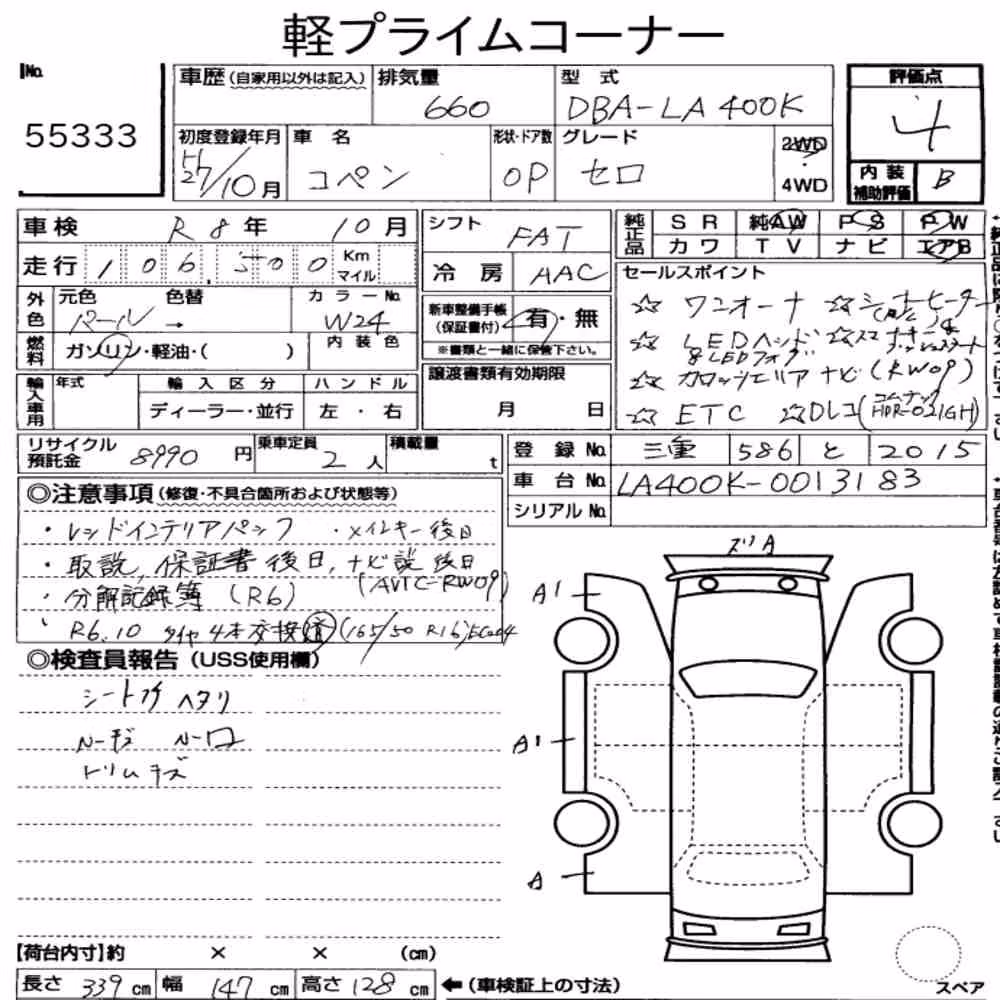 軽プライムコーナー
No.
55333
車歴 (自家用以外は記入)
排気量
660
型 式
DBA-LA400K
初度登録年月
H27/10月
車 名
コペン
形状・ドア数
OP
グレード
セロ
2WD
・
4WD
評価点
4
内装
補助評価
B
車検 R8年 10月
走行 106,500 Km
マイル
外色
元色 色替 カラーNo.
パール → W24
燃料
ガソリン・軽油・( )
内装色
輸入車用
年式
輸入区分
ディーラー・並行
ハンドル
左・右
シフト FAT
冷房 AAC
新車整備手帳
(保証書付)
有・無
※書類と一緒に保管下さい。
譲渡書類有効期限
月 日
純正品
SR 純AW PS PW
カワ TV ナビ エアB
セールスポイント
☆ ワンオーナ ☆シートヒーター
☆ LEDヘッド ☆スマートキー
&LEDフォグ プッシュスタート
☆ カロッツェリア ナビ(RW09)
☆ ETC ☆Dレコ(コムテック
HDR-021GH)
リサイクル
預託金
8990円
乗車定員
2人
積載量
t
登録No. 三重 586 と 2015
車台No. LA400K-0013183
シリアルNo.
◎注意事項 (修復・不具合箇所および状態等)
・レッドインテリアパック ・メインキー後日
・取説, 保証書 後日, ナビ説 後日
(AVIC-RW09)
・分解記録簿 (R6)
・R6.10 タイヤ4本交換済 (165/50 R16)
◎検査員報告 (USS使用欄)
シート ヘタリ
トリムキズ
A1
A1
A
【荷台内寸】約 × × (cm)
長さ 339 cm 幅 147 cm 高さ 128 cm ←(車検証上の寸法)
スペア